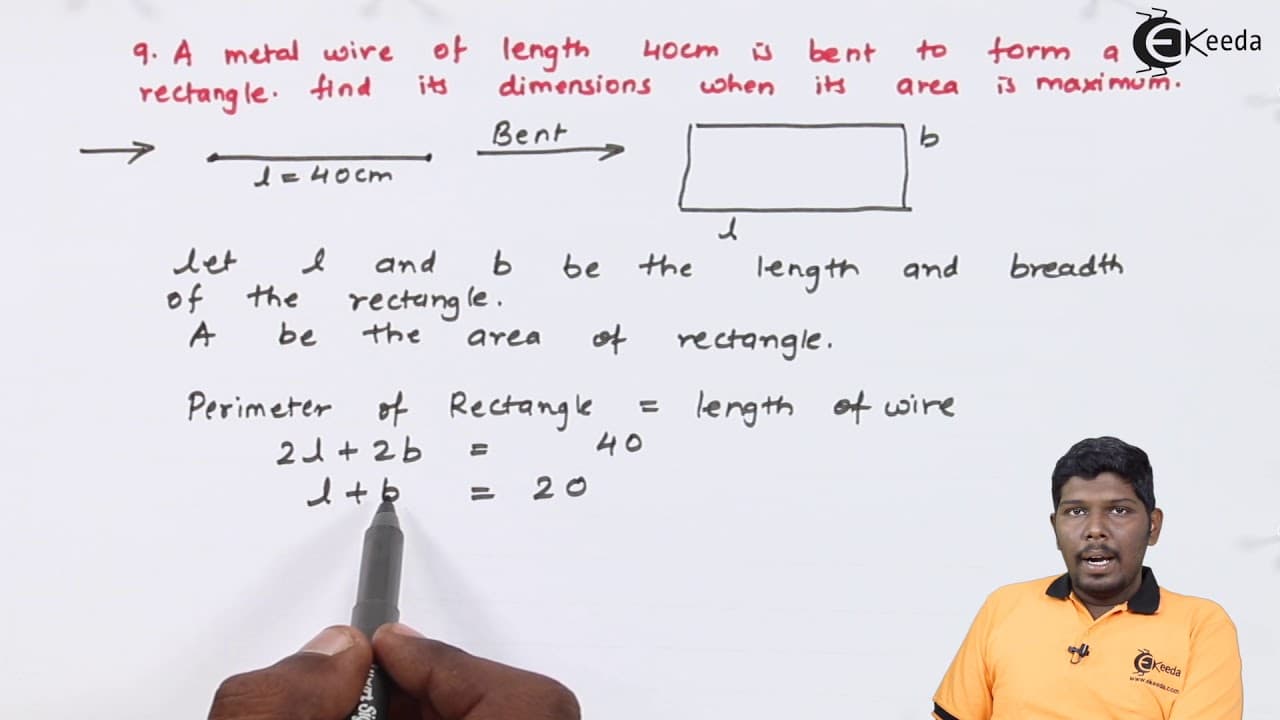 9. A metal wire of length 40cm is bent to form a
rectangle. find its dimensions when its area is maximum.
Ekeeda
Bent
b
l = 40cm
l
let l and b be the length and breadth
of the rectangle.
A be the area of rectangle.
Perimeter of Rectangle = length of wire
2l + 2b = 40
l + b = 20
Ekeeda
www.ekeeda.com